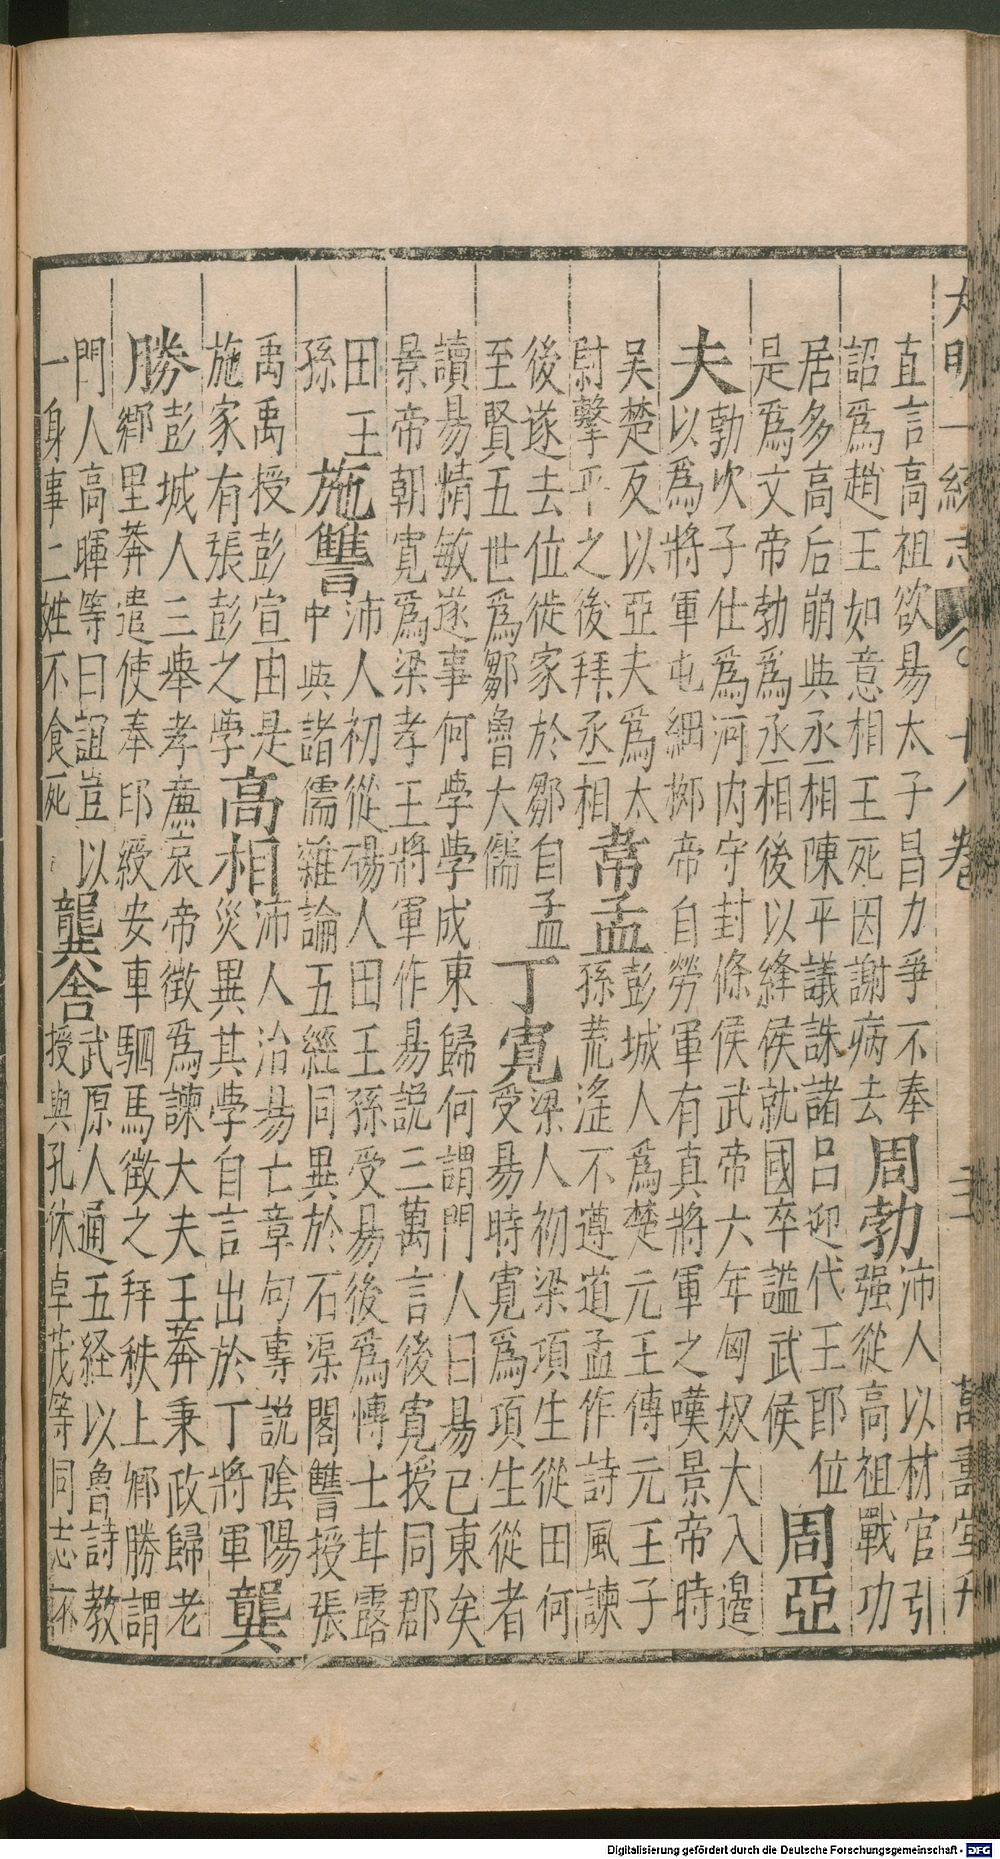 大明一統志
十八卷
萬壽堂刊
直言高祖欲易太子昌力爭不奉
詔爲趙王如意相王死因謝病去
周勃
沛人以材官引
强從高祖戰功
居多高后崩與丞相陳平議誅諸呂迎代王即位
是爲文帝勃爲丞相後以絳侯就國卒謚武侯
周亞
夫
勃次子仕爲河内守封條侯武帝六年匈奴大入邊
以爲將軍屯細桞帝自勞軍有真將軍之嘆景帝時
吳楚反以亞夫爲太
尉擊平之後拜丞相
韋孟
彭城人爲楚元王傅元王子
孫荒淫不遵道孟作詩風諫
後遂去位徙家於鄒自孟
至賢五世爲鄒魯大儒
丁寛
梁人初梁項生從田何
受易時寛爲項生從者
讀易精敏遂事何學學成東歸何謂門人曰易已東矣
景帝朝寛爲梁孝王將軍作易説三萬言後寛授同郡
田王
孫
施讐
沛人初從碭人田王孫受易後爲博士甘露
中與諸儒雜論五經同異於石渠閣讐授張
禹禹授彭宣由是
施家有張彭之學
高相
沛人治易亡章句專説隂陽
災異其學自言出於丁將軍
龔
勝
彭城人三舉孝廉哀帝徴爲諫大夫王莽秉政歸老
鄉里莽遣使奉印綬安車駟馬徴之拜秩上卿勝謂
門人高暉等曰誼豈以
一身事二姓不食死
龔舍
武原人通五経以魯詩教
授與孔休卓茂等同志不
Digitalisierung gefördert durch die Deutsche Forschungsgemeinschaft - DFG